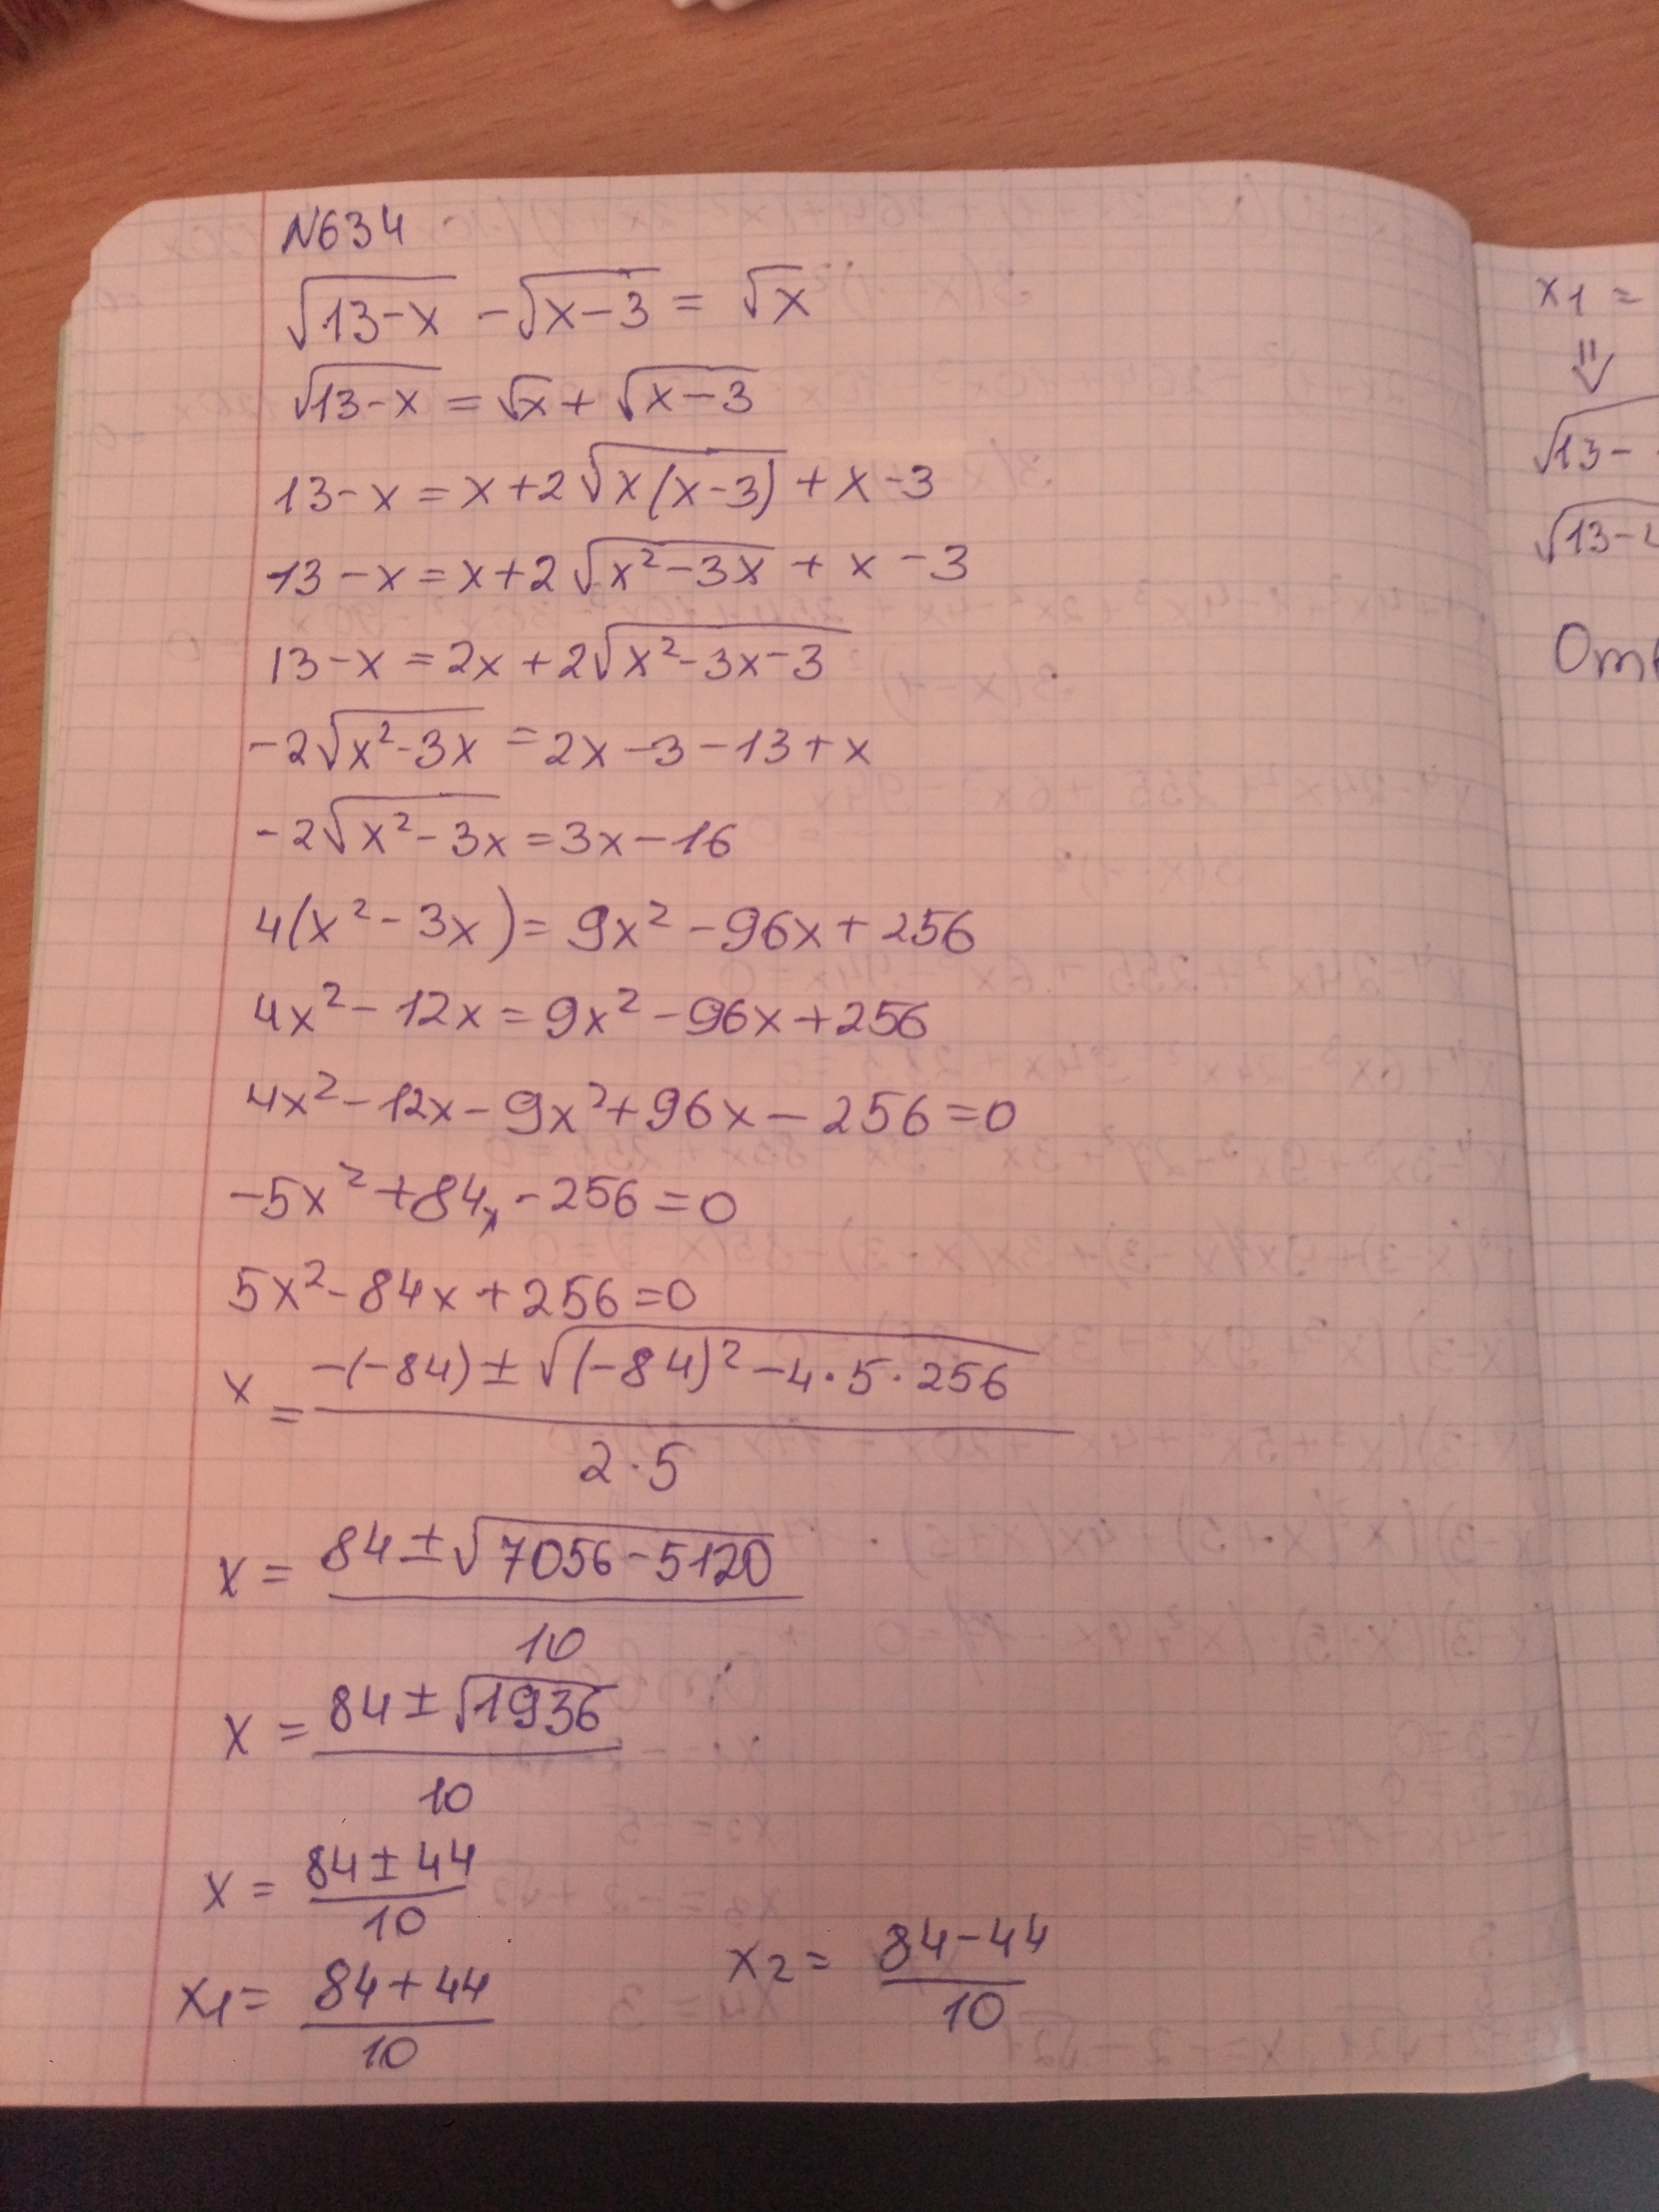 N634
√(13-x) - √(x-3) = √x
√(13-x) = √x + √(x-3)
13-x = x+2√(x(x-3)) + x-3
13-x = x+2√(x²-3x) + x-3
13-x = 2x+2√(x²-3x-3)
-2√(x²-3x) = 2x-3-13+x
-2√(x²-3x) = 3x-16
4(x²-3x) = 9x²-96x+256
4x²-12x = 9x²-96x+256
4x²-12x-9x²+96x-256=0
-5x²+84x-256=0
5x²-84x+256=0
x = (-(-84)±√((-84)²-4·5·256))/(2·5)
x = (84±√(7056-5120))/10
x = (84±√1936)/10
x = (84±44)/10
x1 = (84+44)/10 x2 = (84-44)/10
x1 =
⇓
√13-
√13-4